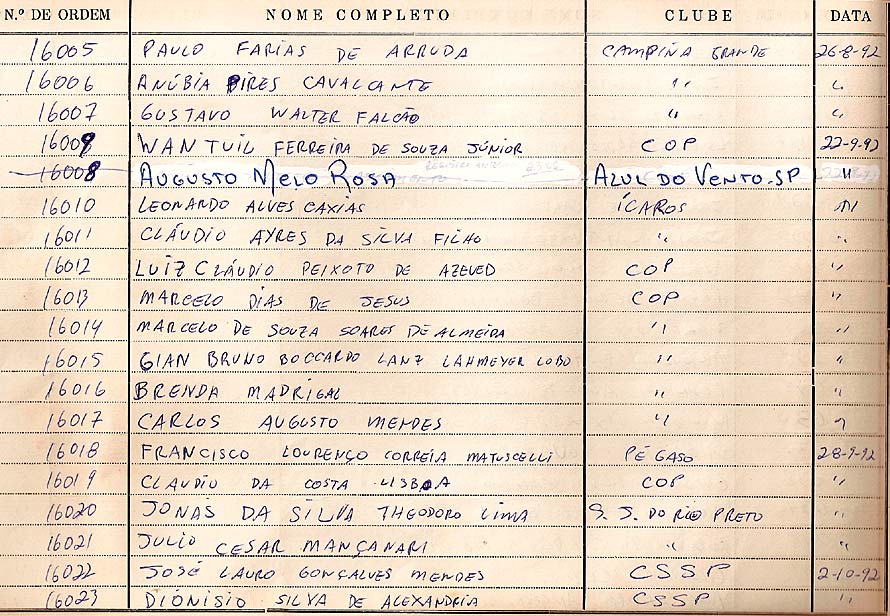 N.º DE ORDEM NOME COMPLETO CLUBE DATA
16005 PAULO FARIAS DE ARRUDA CAMPINA GRANDE 26-8-92
16006 ANÚBIA PIRES CAVALCANTE " "
16007 GUSTAVO WALTER FALCÃO " "
16009 WANTUIL FERREIRA DE SOUZA JÚNIOR COP 22-9-92
16008 AUGUSTO MELO ROSA AZUL DO VENTO-SP "
16010 LEONARDO ALVES CAXIAS ÍCAROS "
16011 CLÁUDIO AYRES DA SILVA FILHO " "
16012 LUIZ CLÁUDIO PEIXOTO DE AZEVED COP "
16013 MARCELO DIAS DE JESUS COP "
16014 MARCELO DE SOUZA SOARES DE ALMEIDA " "
16015 GIAN BRUNO BOCCARDO LANZ LAHMEYER LOBO " "
16016 BRENDA MADRIGAL " "
16017 CARLOS AUGUSTO MENDES " "
16018 FRANCISCO LOURENÇO CORREIA MATUSCELLI PÉGASO 28-9-92
16019 CLAUDIO DA COSTA LISBOA COP "
16020 JONAS DA SILVA THEODORO LIMA S. J. DO RIO PRETO "
16021 JULIO CESAR MANÇANARI " "
16022 JOSÉ LAURO GONÇALVES MENDES CSSP 2-10-92
16023 DIONISIO SILVA DE ALEXANDRIA CSSP "